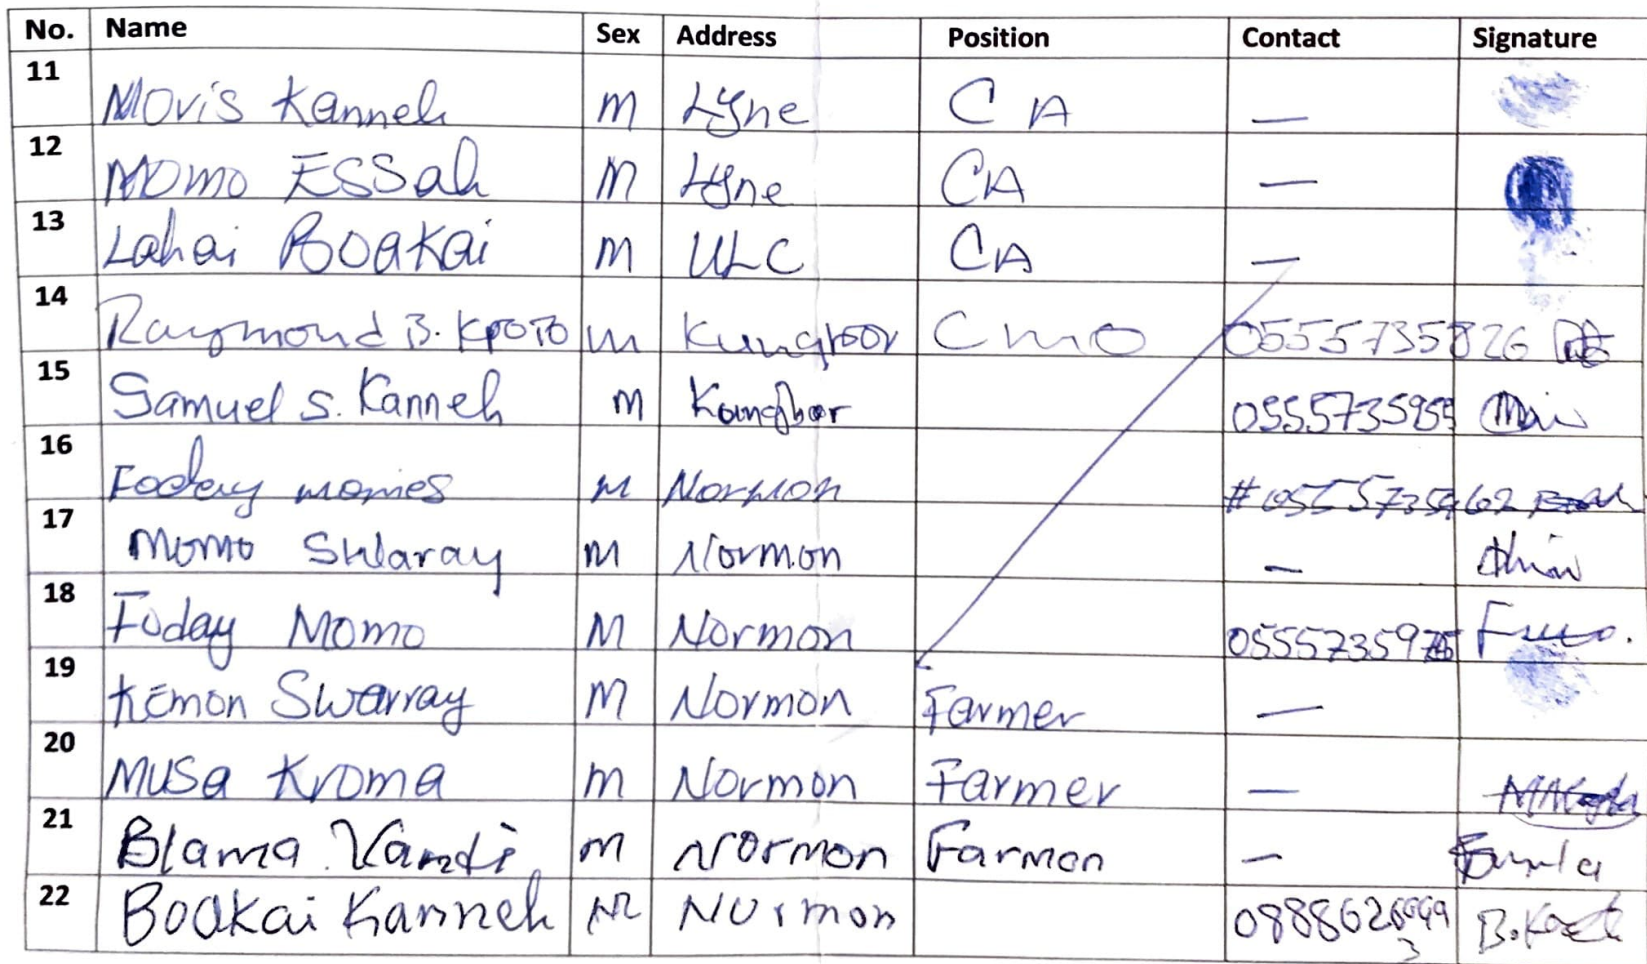 No. Name Sex Address Position Contact Signature
11 Movis Kanneh M Lyne C A —
12 Momo ESSah M Lyne CA —
13 Lahai BOaKai M ULC CA —
14 Raymond B. KPOTO M Kungbor CMO 0555735826
15 Samuel S. Kanneh M Koungbor 0555735959
16 Foday momes M Normon # 0555735962
17 Momo Swaray M Normon —
18 Foday Momo M Normon
19 Kemon Swarray M Normon Farmer —
20 MUSa Kroma M Normon Farmer —
21 Blama Vandi M Normon Farmon —
22 Boakai Kanneh M Normon